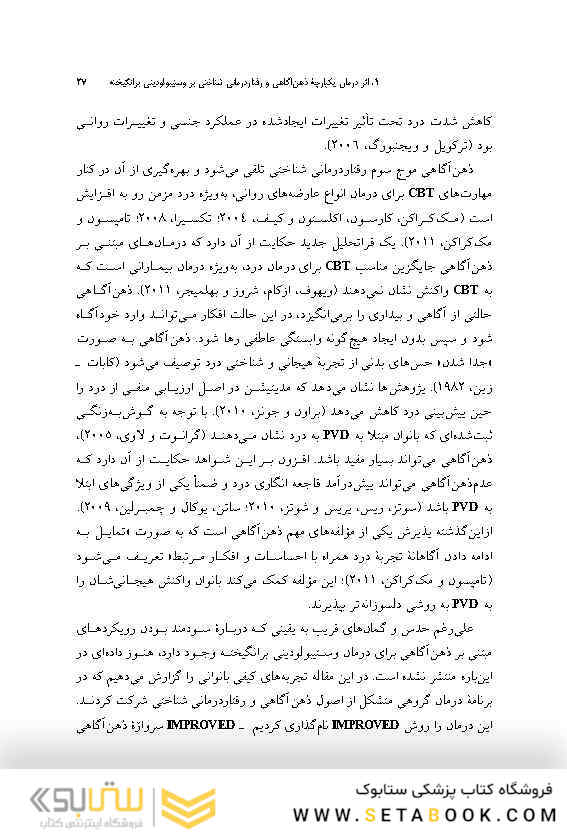 ۱. اثر درمان یکپارچهٔ ذهن‌آگاهی و رفتاردرمانی شناختی بر وستیبولودینی برانگیخته ۲۷
کاهش شدت درد تحت تأثیر تغییرات ایجادشده در عملکرد جنسی و تغییرات روانی
بود (ترکویل و ویجنبورگ، ۲۰۰۶).
ذهن‌آگاهی موج سوم رفتاردرمانی شناختی تلقی می‌شود و بهره‌گیری از آن در کنار
مهارت‌های CBT برای درمان انواع عارضه‌های روانی، به‌ویژه درد مزمن رو به افزایش
است (مک‌کراکن، کارسون، اکلستون و کیف، ۲۰۰۴؛ تکسیرا، ۲۰۰۸؛ تامپسون و
مک‌کراکن، ۲۰۱۱). یک فراتحلیل جدید حکایت از آن دارد که درمان‌های مبتنی بر
ذهن‌آگاهی جایگزین مناسب CBT برای درمان درد، به‌ویژه درمان بیمارانی است که
به CBT واکنش نشان نمی‌دهند (ویهوف، ازکام، شروز و بهلمیجر، ۲۰۱۱). ذهن‌آگاهی
حالتی از آگاهی و بیداری را برمی‌انگیزد، در این حالت افکار می‌توانند وارد خودآگاه
شود و سپس بدون ایجاد هیچ‌گونه وابستگی عاطفی رها شود؛ ذهن‌آگاهی به صورت
«جدا شدن» حس‌های بدنی از تجربهٔ هیجانی و شناختی درد توصیف می‌شود (کابات ـ
زین، ۱۹۸۲). پژوهش‌ها نشان می‌دهد که مدیتیشن در اصل ارزیابی منفی از درد را
حین پیش‌بینی درد کاهش می‌دهد (براون و جونز، ۲۰۱۰). با توجه به گوش‌به‌زنگی
ثبت‌شده‌ای که بانوان مبتلا به PVD به درد نشان می‌دهند (گرانوت و لاوی، ۲۰۰۵)،
ذهن‌آگاهی می‌تواند بسیار مفید باشد. افزون بر این شواهد حکایت از آن دارد که
عدم‌ذهن‌آگاهی می‌تواند پیش‌درآمد فاجعه انگاری درد و ضمناً یکی از ویژگی‌های ابتلا
به PVD باشد (سوتز، ریس، پریس و شوتز، ۲۰۱۰؛ ساتن، پوکال و چمبرلین، ۲۰۰۹).
ازاین‌گذشته پذیرش یکی از مؤلفه‌های مهم ذهن‌آگاهی است که به صورت «تمایل به
ادامه دادن آگاهانهٔ تجربهٔ درد همراه با احساسات و افکار مرتبط» تعریف می‌شود
(تامپسون و مک‌کراکن، ۲۰۱۱)؛ این مؤلفه کمک می‌کند بانوان واکنش هیجانی‌شان را
به PVD به روشی دلسوزانه‌تر بپذیرند.
علی‌رغم حدس و گمان‌های قریب به یقینی که دربارهٔ سودمند بودن رویکردهای
مبتنی بر ذهن‌آگاهی برای درمان وستیبولودینی برانگیخته وجود دارد، هنوز داده‌ای در
این‌باره منتشر نشده است. در این مقاله تجربه‌های کیفی بانوانی را گزارش می‌دهیم که در
برنامهٔ درمان گروهی متشکل از اصول ذهن‌آگاهی و رفتاردرمانی شناختی شرکت کردند.
این درمان را روش IMPROVED نام‌گذاری کردیم ـ IMPROVED سرواژهٔ ذهن‌آگاهی
فروشگاه کتاب پزشکی ستابوک
WWW.SETABOOK.COM
ستابوک
فروشگاه اینترنتی کتاب